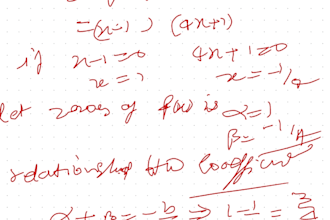 =(x-1) (4x+1)
if x-1=0 4x+1=0
x=1 x=-1/4
let zeroes of f(x) is α=1
β=-1/4
relationship b/w coefficient
α+β=-b/a ⇒ 1-1/4 = 3